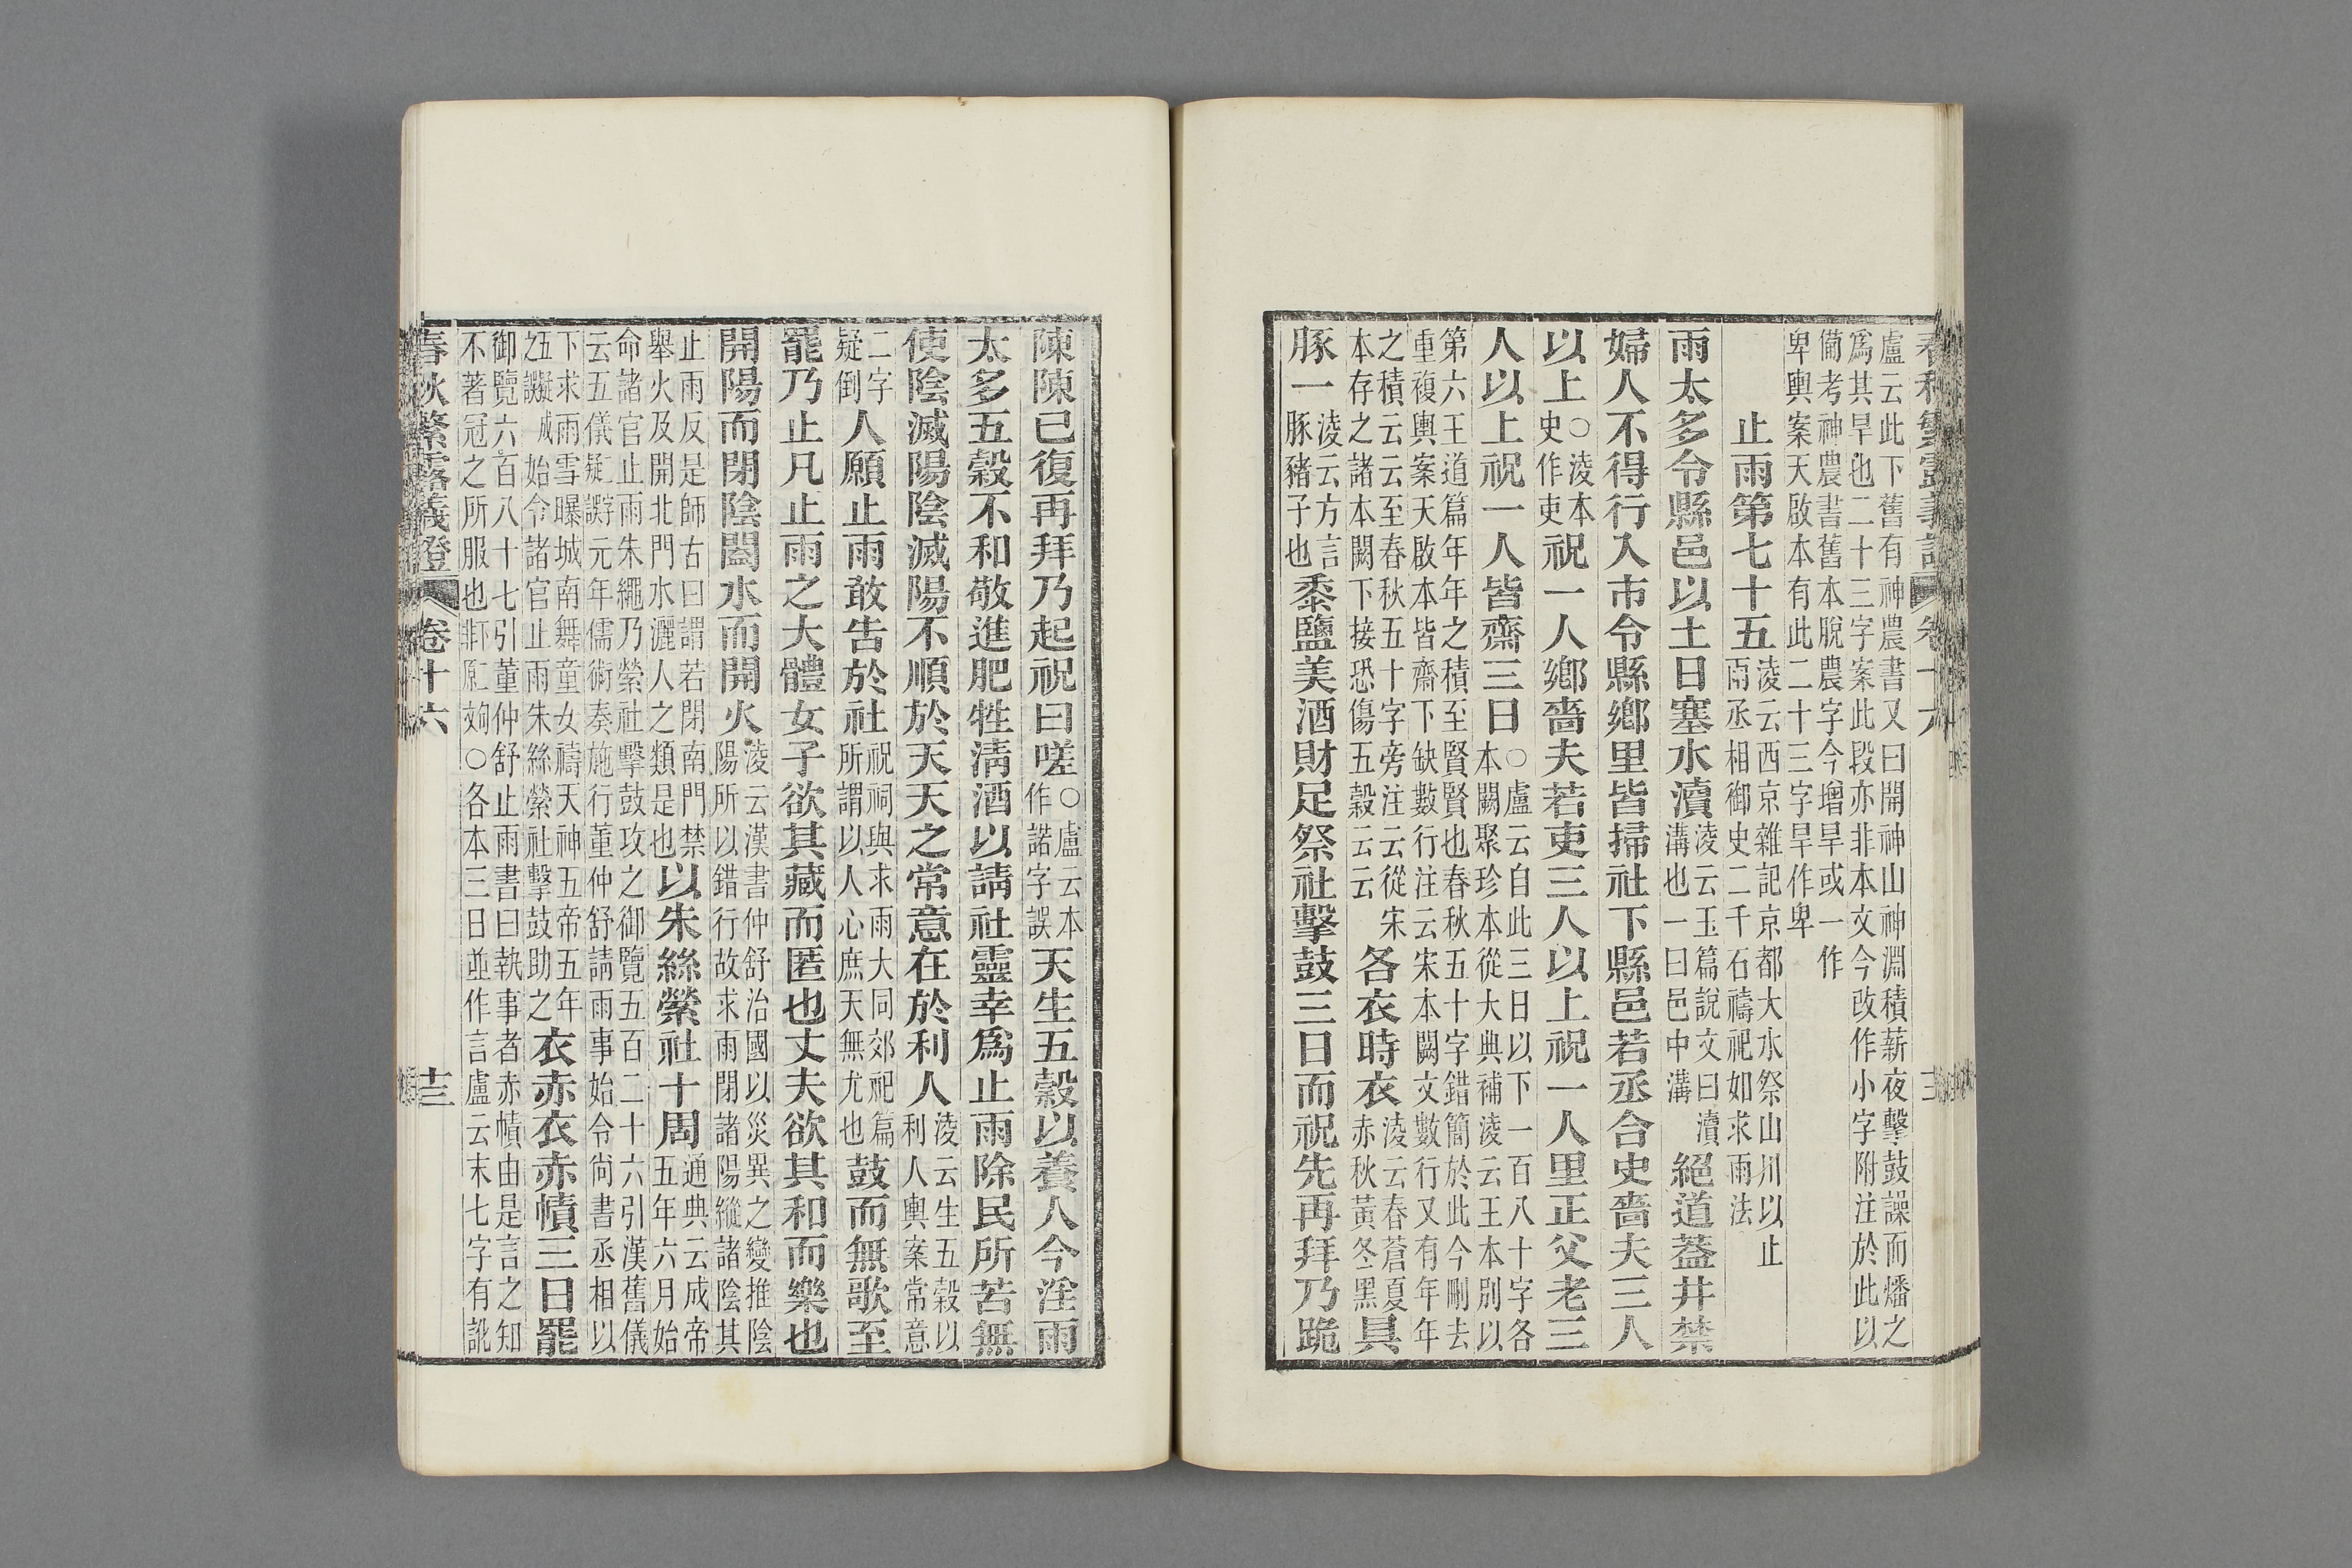 春秋繁露義證 卷十六
盧云此下舊有神農書又曰開神山神淵積薪夜擊鼓譟而燔之
爲其旱也二十三字案此段亦非本文今改作小字附注於此以
備考神農書舊本脫農字今增旱或一作
卑輿案天啟本有此二十三字旱作卑
止雨第七十五淩云西京雜記京都大水祭山川以止
雨丞相御史二千石禱祀如求雨法
雨太多令縣邑以土日塞水瀆淩云玉篇說文曰瀆
溝也一曰邑中溝絕道蓋井禁
婦人不得行入市令縣鄉里皆掃社下縣邑若丞合史嗇夫三人
以上○淩本
史作吏祝一人鄉嗇夫若吏三人以上祝一人里正父老三
人以上祝一人皆齋三日○盧云自此三日以下一百八十字各
本闕聚珍本從大典補淩云王本別以
第六王道篇年年之積至賢賢也春秋五十字錯簡於此今刪去
重複輿案天啟本皆齋下缺數行注云宋本闕文數行又有年年
之積云云至春秋五十字旁注云從宋
本存之諸本闕下接恐傷五穀云云各衣時衣淩云春蒼夏
赤秋黃冬黑具
豚一淩云方言
豚豬子也黍鹽美酒財足祭社擊鼓三日而祝先再拜乃跪
陳陳已復再拜乃起祝曰嗟○盧云本
作諾字誤天生五穀以養人今淫雨
太多五穀不和敬進肥牲淸酒以請社靈幸爲止雨除民所苦無
使陰滅陽陰滅陽不順於天天之常意在於利人淩云生五穀以
利人輿案常意
二字
疑倒人願止雨敢告於社祝祠與求雨大同郊祀篇
所謂以人心庶天無尤也鼓而無歌至
罷乃止凡止雨之大體女子欲其藏而匿也丈夫欲其和而樂也
開陽而閉陰闔水而開火淩云漢書仲舒治國以災異之變推陰
陽所以錯行故求雨閉諸陽縱諸陰其
止雨反是師古曰謂若閉南門禁
舉火及開北門水灑人之類是也以朱絲縈社十周通典云成帝
五年六月始
命諸官止雨朱繩乃縈社擊鼓攻之御覽五百二十六引漢舊儀
云五儀二字疑誤元年儒術奏施行董仲舒請雨事始令尙書丞相以
下求雨雪曝城南舞童女禱天神五帝五年
始令諸官止雨朱絲縈社擊鼓助之衣赤衣赤幘三日罷
御覽六百八十七引董仲舒止雨書曰執事者赤幘由是言之知
不著冠之所服也○各本三日並作言盧云末七字有訛
春秋繁露義證 卷十六 十三